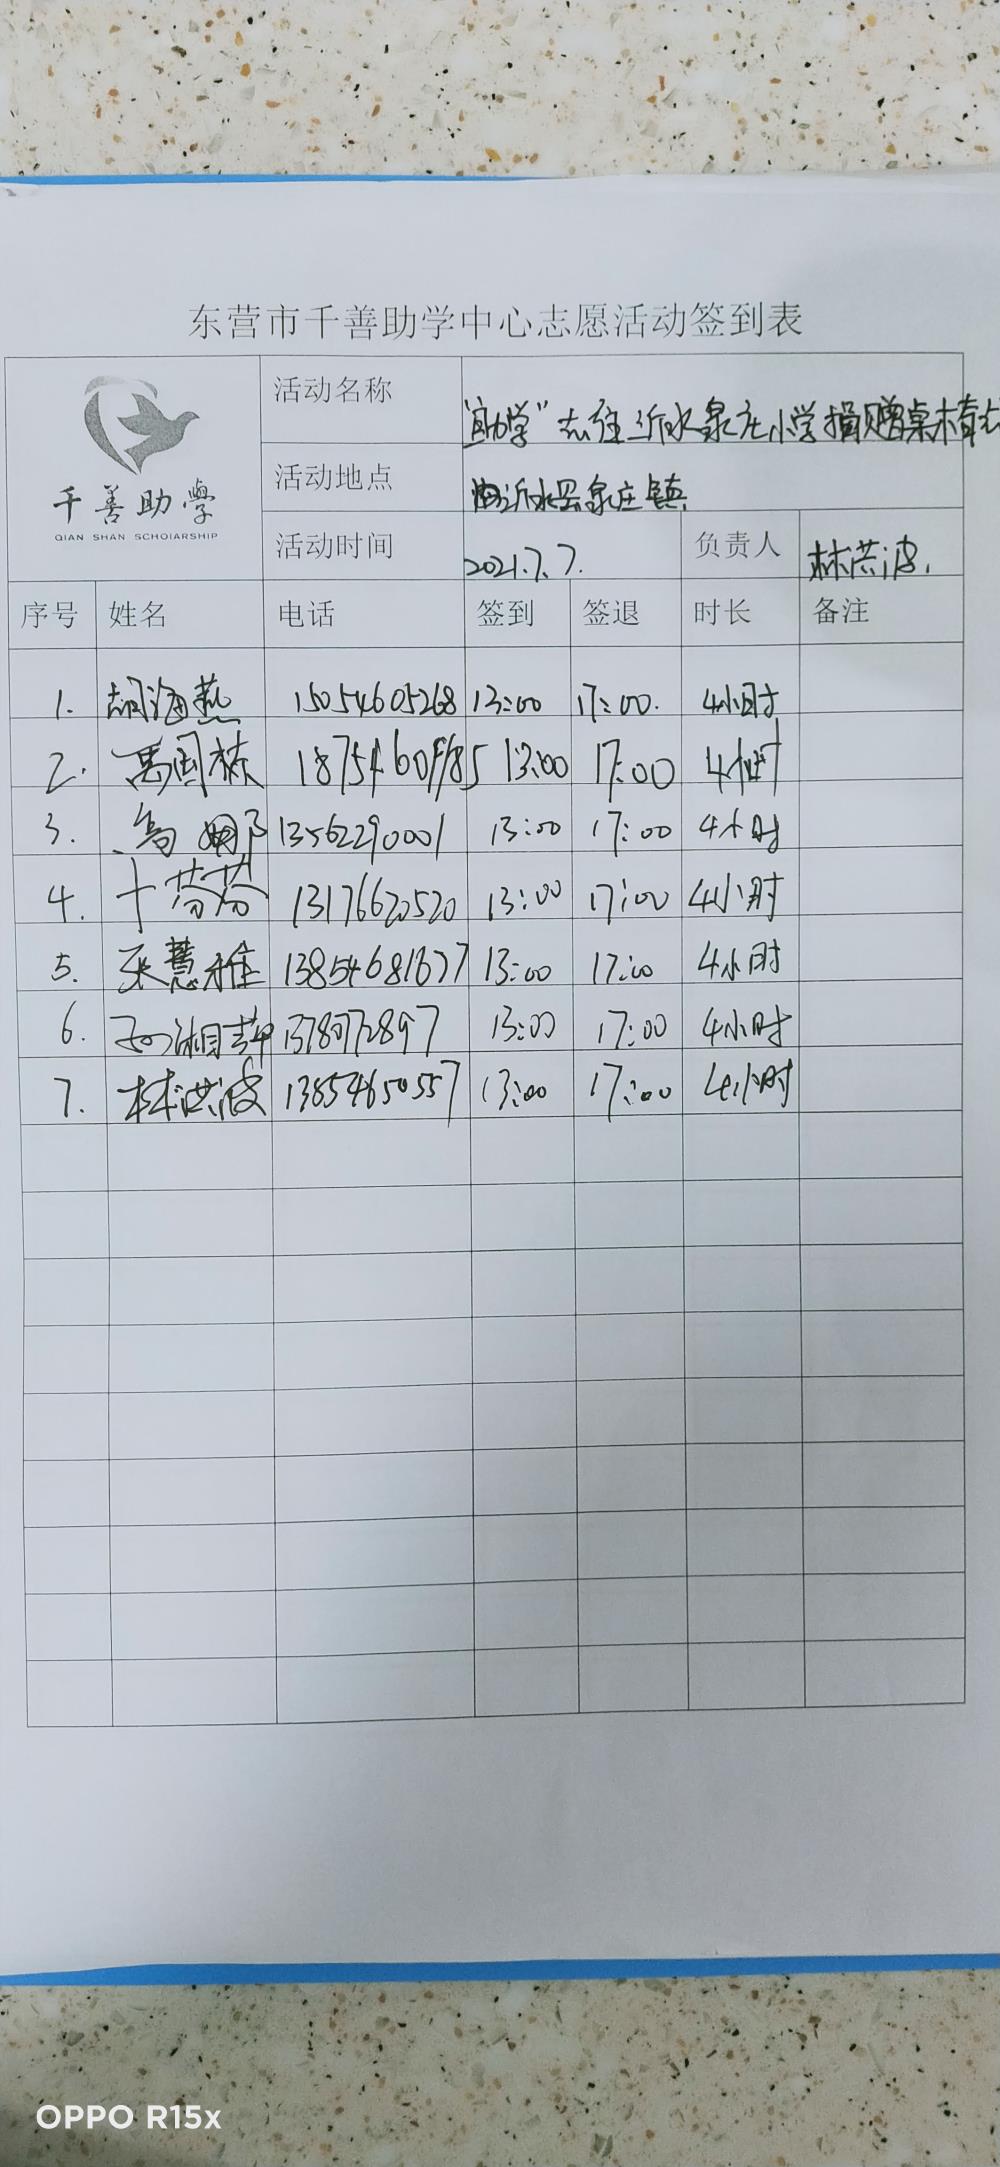 东营市千善助学中心志愿活动签到表
千善助學
QIAN SHAN SCHOlARSHIP
活动名称 助学" 沂水泉庄小学捐赠桌椅
活动地点 沂水县泉庄镇
活动时间 2021.7.7. 负责人 林洪波.
序号 姓名 电话 签到 签退 时长 备注
1. 胡海燕 15054605268 13:00 17:00. 4小时
2. 禹国栋 13:00 17:00 4小时
3. 13562290001 13:00 17:00 4小时
4. 芬芬 13176620520 13:00 17:00 4小时
5. 张慧雅 13854681677 13:00 17:00 4小时
6. 孙湘萍 13780772897 13:00 17:00 4小时
7. 林洪波 13854650557 13:00 17:00 4小时
OPPO R15x